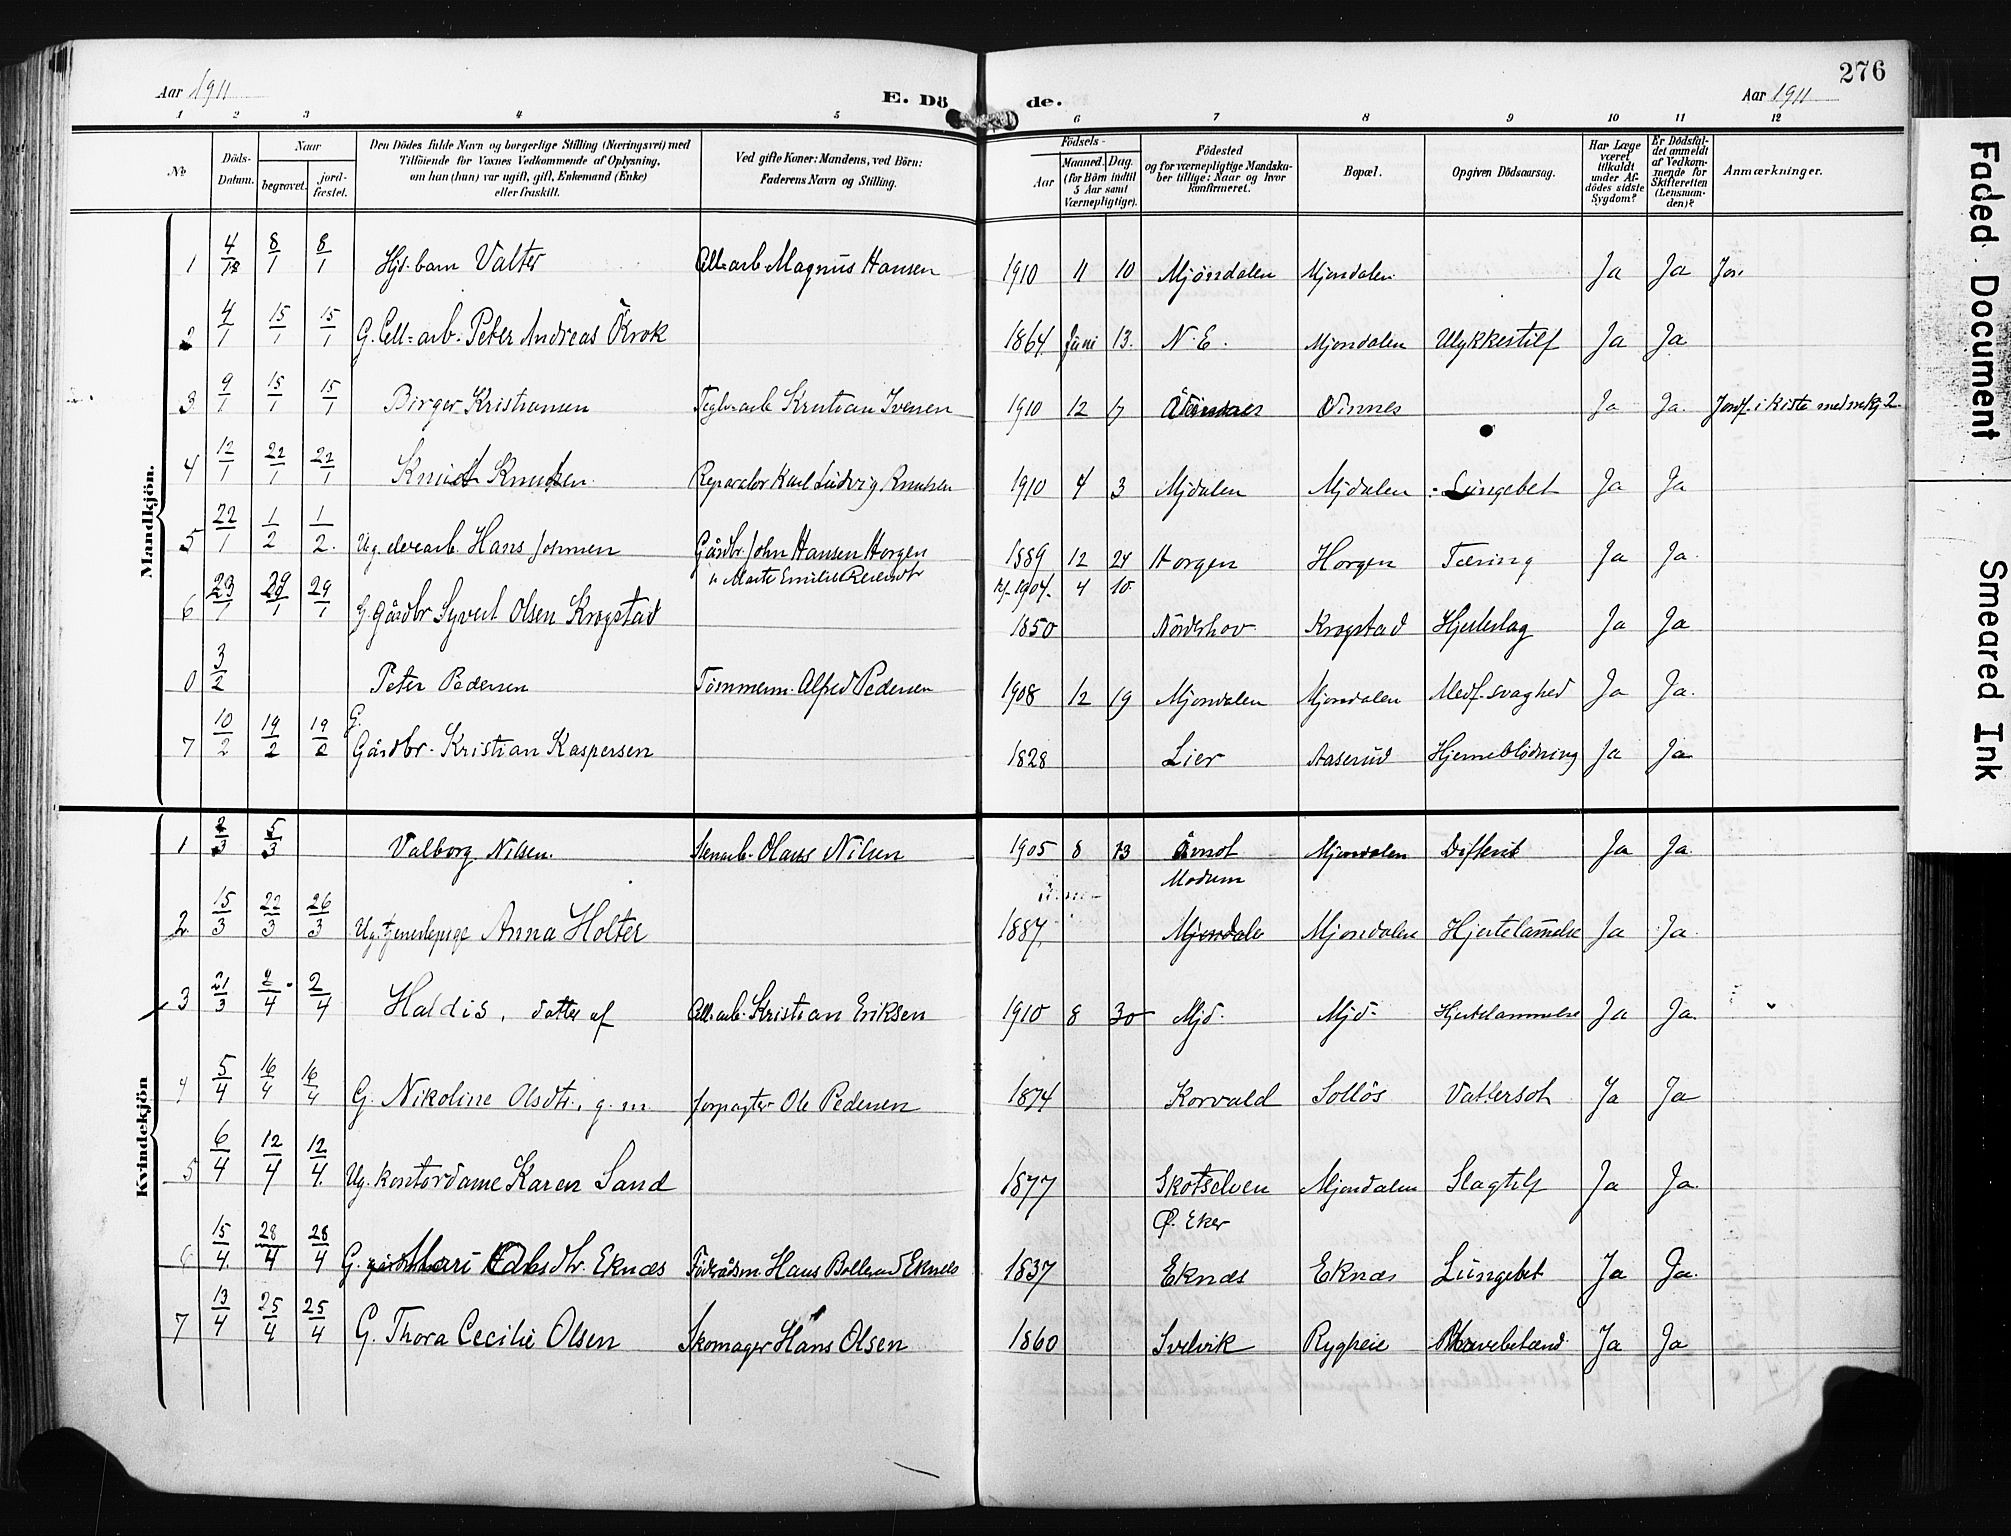 276
Aar 1911
E. Dö de.
Aar 1911
1 2 3 4 5 6 7 8 9 10 11 12
No
Döds-Datum.
Naar
begravet.
jord-fæstet.
Den Dödes fulde Navn og borgerlige Stilling (Næringsvei) med
Tilföiende for Voxnes Vedkommende af Oplysning,
om han (hun) var ugift, gift, Enkemand (Enke)
eller fraskilt.
Ved gifte Koner: Mandens, ved Börn:
Faderens Navn og Stilling.
Födsels-
Aar
Maaned. Dag.
(for Börn indtil
5 Aar samt
Værnepligtige).
Födested
og for værnepligtige Mandska-
ber tillige: Naar og hvor
konfirmeret.
Bopæl.
Opgiven Dödsaarsag.
Har Læge
været
tilkaldt
under Af-
dödes sidste
Sygdom?
Er Dödsfal-
det anmeldt
af Vedkom-
mende for
Skifteretten
(Lensman-
den)?
Anmærkninger.
Mandkjön.
1 4/12 8/1 8/1 Hjd. barn Valter Cell=arb. Magnus Hansen 1910 11 10 Mjöndalen Mjondalen Ja Ja
2 4/1 15/1 15/1 G. Cell=arb. Peter Andreas Krok 1864 Juni 13. N. E. Mjondalen Ulykkestilf Ja Ja
3 9/1 15/1 15/1 Birger Kristiansen Teglv.arb Kristian Iversen 1910 12 17 Vinnes Ja Ja. Jordf. i kiste med
4 12/1 22/1 22/1 Knudt Knudsen Reparatör Karl Ludvig Knutsen 1910 4 3 Mjdalen Mjdalen Lungebet Ja Ja
5 22/1 1/2 1/2. Ug. Hans Johnsen Gårdbr. John Hansen Horgen 1889 12 24 Horgen Horgen Tæring Ja Ja.
u Marte Emilie 1904. 4 10
6 23/1 29/1 29/1 G. Gårdbr Syvert Olsen Krogstad 1850 Nörderhov Krogstad Hjerteslag Ja Ja
0 3/2 Peter Pedersen Tömmerm. Alfred Pedersen 1908 12 19 Mjondalen Mjondalen Medf. svaghed Ja Ja.
G.
7 10/2 19/2 19/2 Gårdbr. Kristian Kaspersen 1828 Lier Aaserud Hjerneblödning Ja Ja
Kvindekjön
1 2/3 5/3 Valborg Nilsen. Stenarb. Olaus Nilsen 1905 8 13 Åmot Mjondalen Difterit Ja Ja.
Modum
2 15/3 22/3 26/3 Ug. tjenestepige Anna Holter 1887. Mjondale Mjondalen Hjertelammelse Ja Ja
3 21/3 2/4 2/4 Haldis, datter af Cell.arb. Kristian Eriksen 1910 8 30 Mjd. Mjd. Hjertelammelse Ja Ja.
4 5/4 16/4 16/4 G. Nikoline Olsdtr., g.m. forpagter Ole Pedersen 1874 Korvald Sollös Vattersot Ja Ja
5 6/4 12/4 12/4. Ug. kontordame Karen Sand 1877 Skotselven Mjondalen Slagtilf Ja Ja.
Ø. Eker
6 15/4. 28/4 28/4 G. Mari Eknæs Föderådsm. Hans Eknæs 1837 Eknæs Eknæs Lungebet Ja Ja.
7 13/4 25/4 25/4 G. Thora Cecilie Olsen Skomager Hans Olsen 1860 Svelvik Rygheie Ja Ja
Faded Document
Smeared Ink